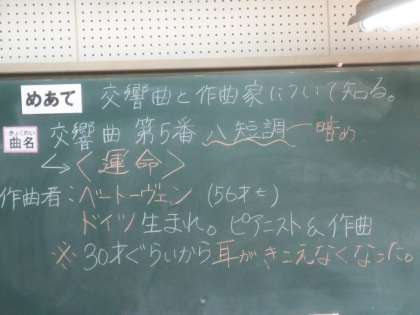 めあて 交響曲と作曲家について知る。
きょくめい
曲名 交響曲 第5番 ハ短調ー暗め
↳〈運命〉
作曲者:ベートーヴェン (56才む)
ドイツ生まれ。ピアニスト&作曲
※30才ぐらいから耳がきこえなくなった。